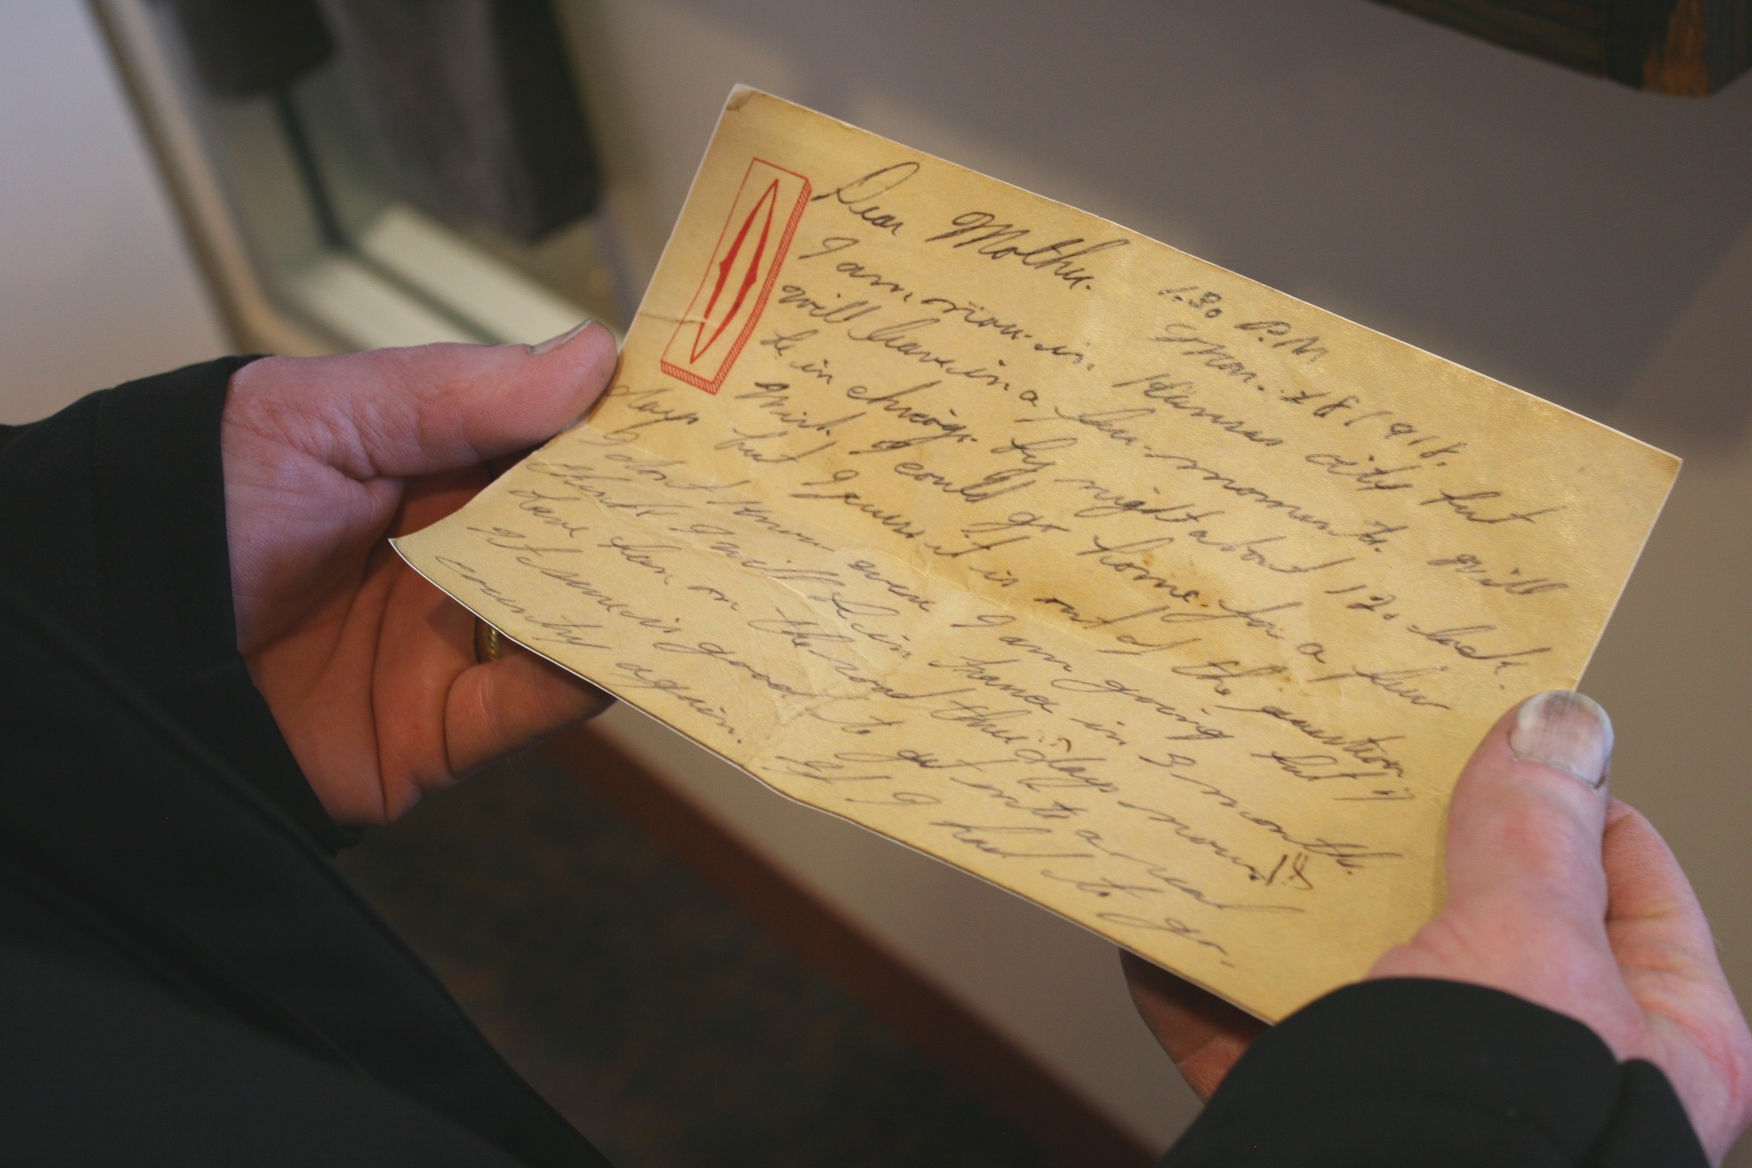 Dear Mother. 1.30 P.M
1918.
I am now in. Kansas city but
will leave in a few moments. will
be in by night about 12 o clock.
Wish I could go home for a few
days but I guess it is out of the question
I dont know were I am going but I
think I will be in France in 3 months.
Have ben on the road three days now. 18
It is good to get into a real
country again. If I had to go.